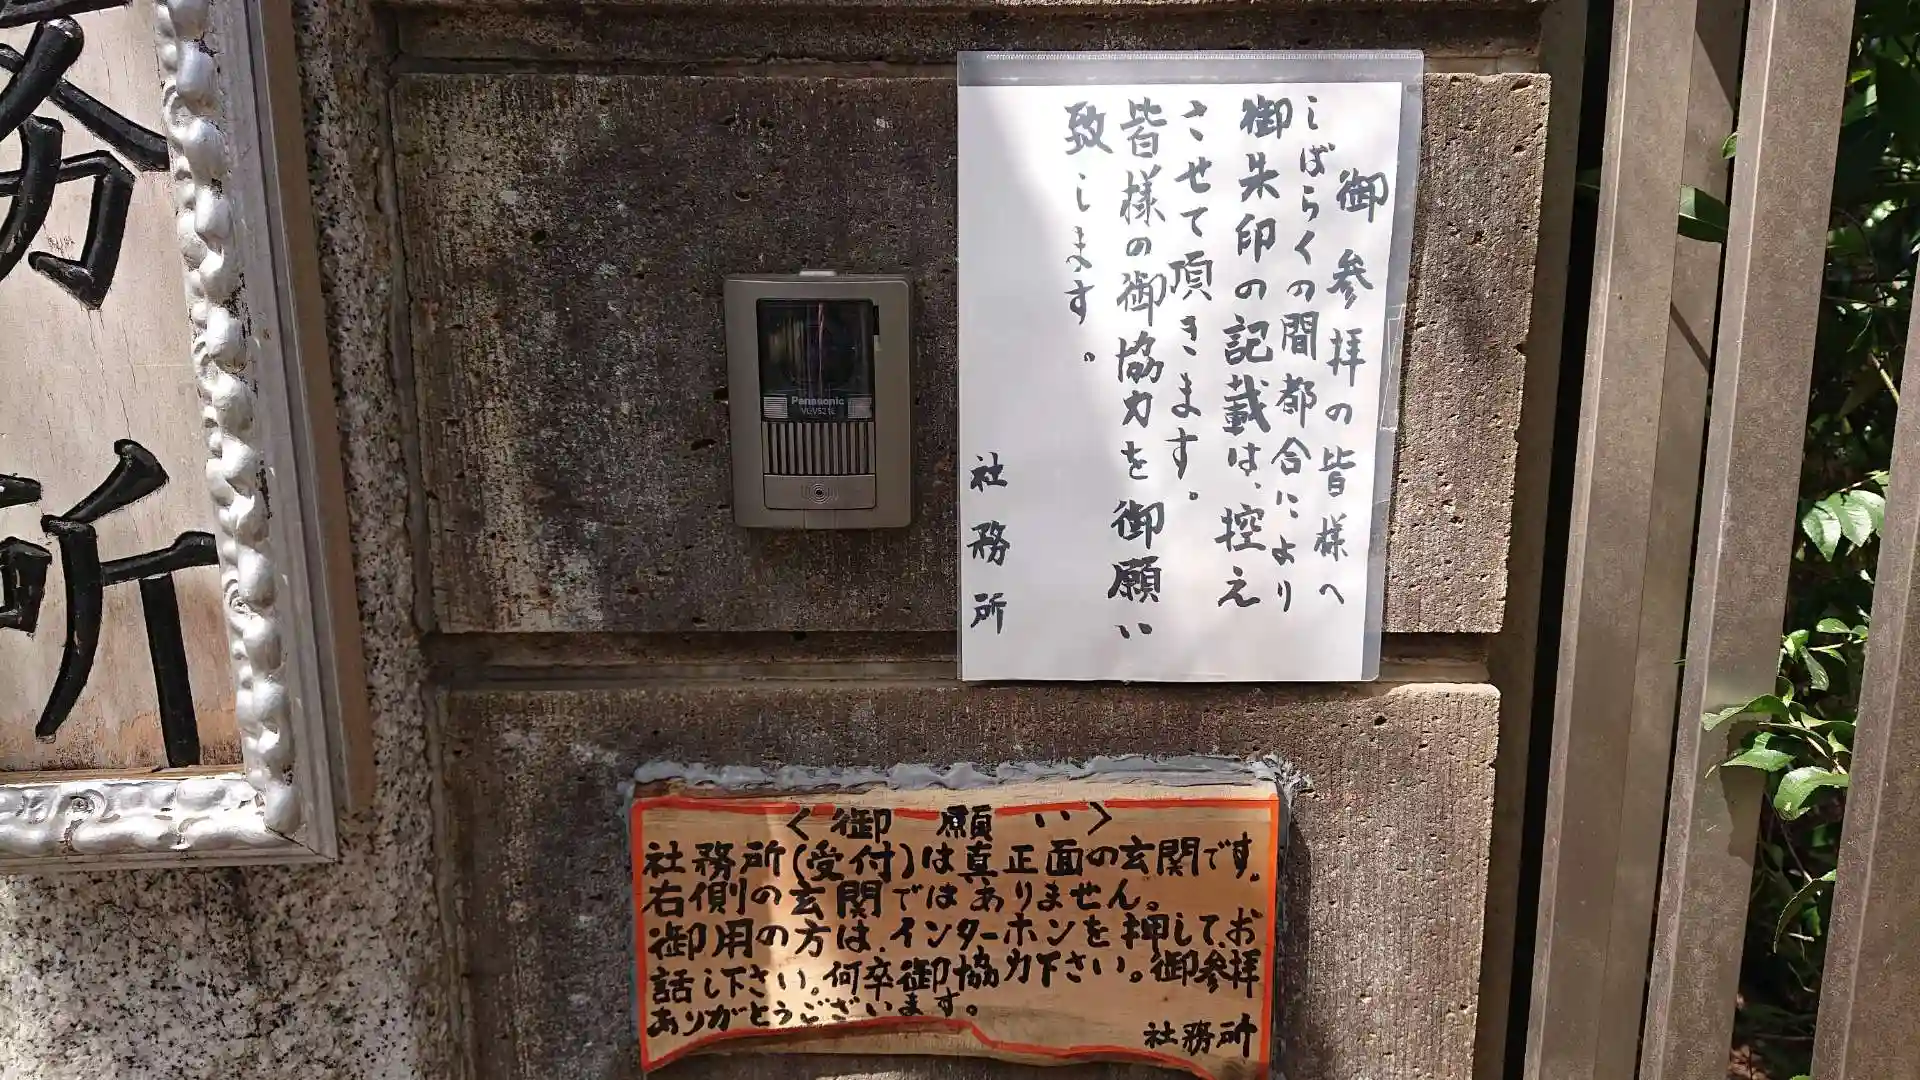 務所
御参拝の皆様へ
しばらくの間都合により
御朱印の記載は、控え
させて頂きます。
皆様の御協力を御願い
致します。
社務所
Panasonic
<御願い>
社務所(受付)は真正面の玄関です。
右側の玄関ではありません。
御用の方は、インターホンを押して、お
話し下さい。何卒御協力下さい。御参拝
ありがとうございます。
社務所